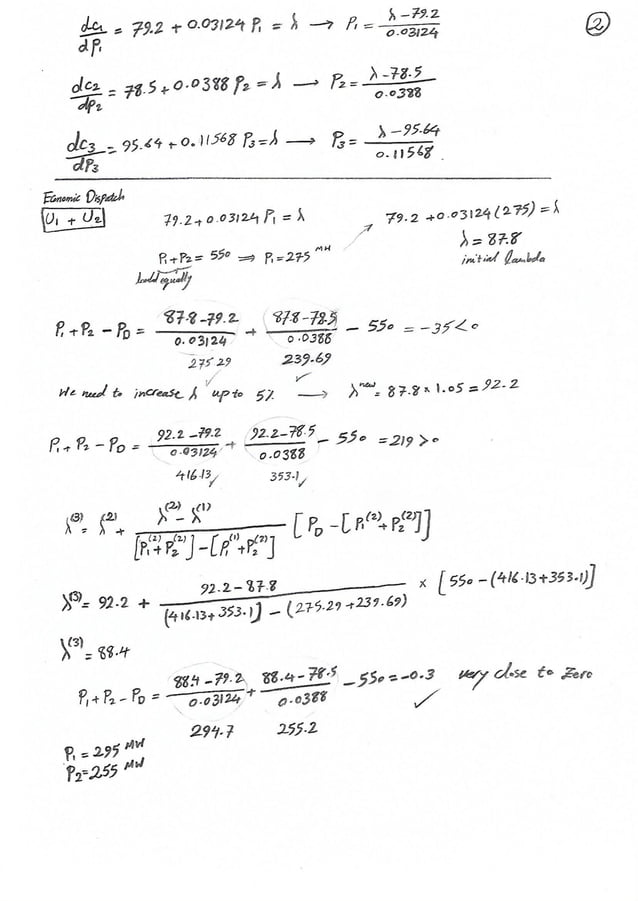 ②
dc₁/dP₁ = 79.2 + 0.03124 P₁ = λ → P₁ = (λ - 79.2)/0.03124
dc₂/dP₂ = 78.5 + 0.0388 P₂ = λ → P₂ = (λ - 78.5)/0.0388
dc₃/dP₃ = 95.64 + 0.11568 P₃ = λ → P₃ = (λ - 95.64)/0.11568
Economic Dispatch
U₁ + U₂
79.2 + 0.03124 P₁ = λ
79.2 + 0.03124 (275) = λ
P₁ + P₂ = 550 ⇒ P₁ = 275 MW
λ = 87.8
load equally
initial lambda
P₁ + P₂ - P_D = (87.8 - 79.2)/0.03124 + (87.8 - 78.5)/0.0388 - 550 = -35 < 0
275.29 239.69
✓ ✓
We need to increase λ up to 5% → λ^new = 87.8 × 1.05 = 92.2
P₁ + P₂ - P_D = (92.2 - 79.2)/0.03124 + (92.2 - 78.5)/0.0388 - 550 = 219 > 0
416.13 ✓ 353.1 ✓
λ⁽³⁾ = λ⁽²⁾ + (λ⁽²⁾ - λ⁽¹⁾)/([P₁⁽²⁾ + P₂⁽²⁾] - [P₁⁽¹⁾ + P₂⁽²⁾]) [P_D - [P₁⁽²⁾ + P₂⁽²⁾]]
λ⁽³⁾ = 92.2 + (92.2 - 87.8)/((416.13 + 353.1) - (275.29 + 239.69)) × [550 - (416.13 + 353.1)]
λ⁽³⁾ = 88.4
P₁ + P₂ - P_D = (88.4 - 79.2)/0.03124 + (88.4 - 78.5)/0.0388 - 550 = -0.3 very close to Zero
✓
294.7 255.2
P₁ = 295 MW
P₂ = 255 MW